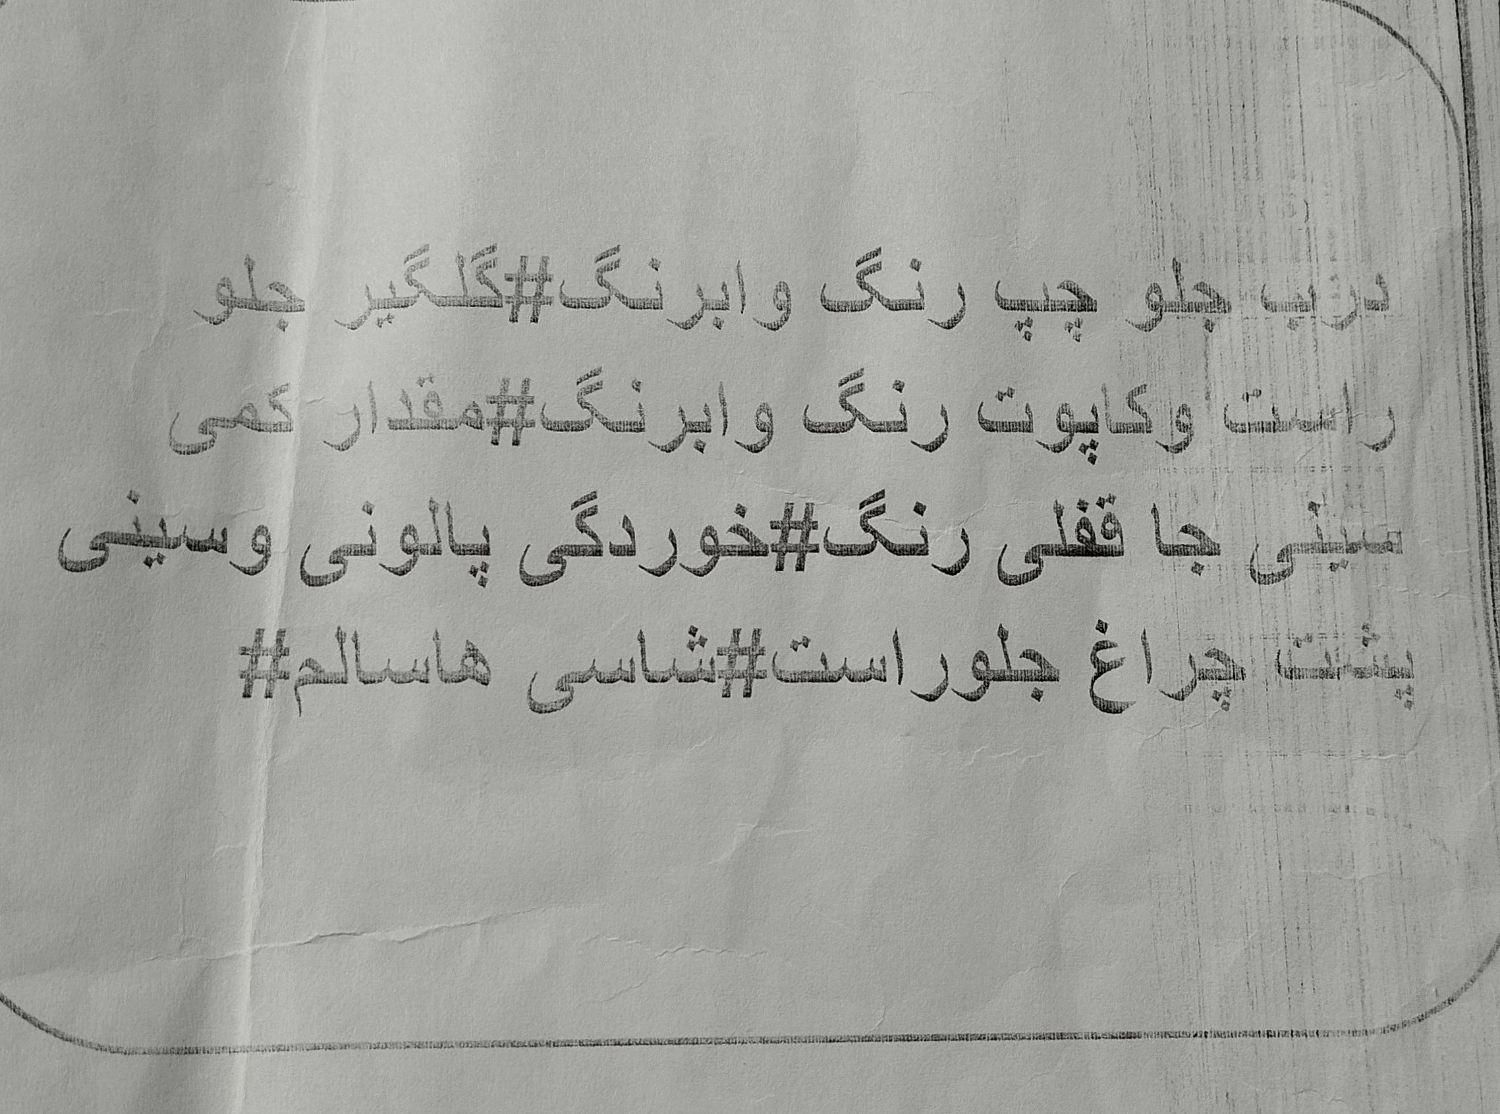 درب جلو چپ رنگ وابرنگ#گلگیر جلو
راست وکاپوت رنگ وابرنگ#مقدار کمی
سینی جا قفلی رنگ#خوردگی پالونی وسینی
پشت چراغ جلوراست#شاسی هاسالم#